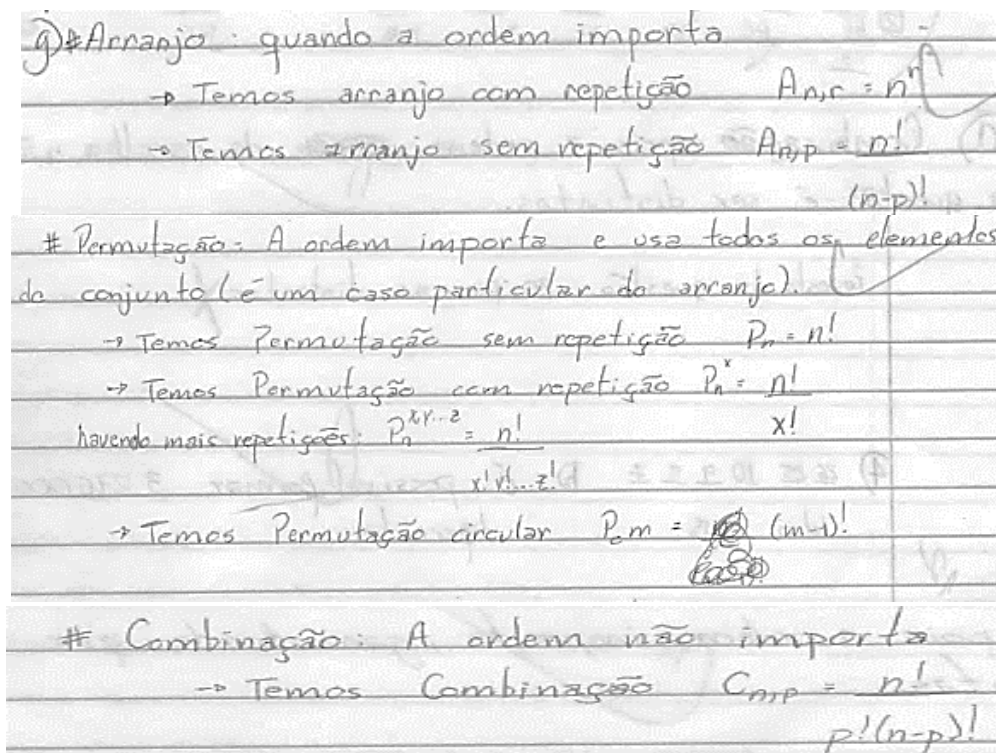 g) # Arranjo: quando a ordem importa
→ Temos arranjo com repetição A n,r = n^r
→ Temos arranjo sem repetição A n,p = n!
(n-p)!
# Permutação: A ordem importa e usa todos os elementos
do conjunto (é um caso particular do arranjo).
→ Temos Permutação sem repetição Pn = n!
→ Temos Permutação com repetição Pn^x = n!
x!
havendo mais repetições: Pn^x,y...z = n!
x!y!...z!
→ Temos Permutação circular Pcm = (m-1)!
# Combinação: A ordem não importa
→ Temos Combinação C n,p = n!
p!(n-p)!